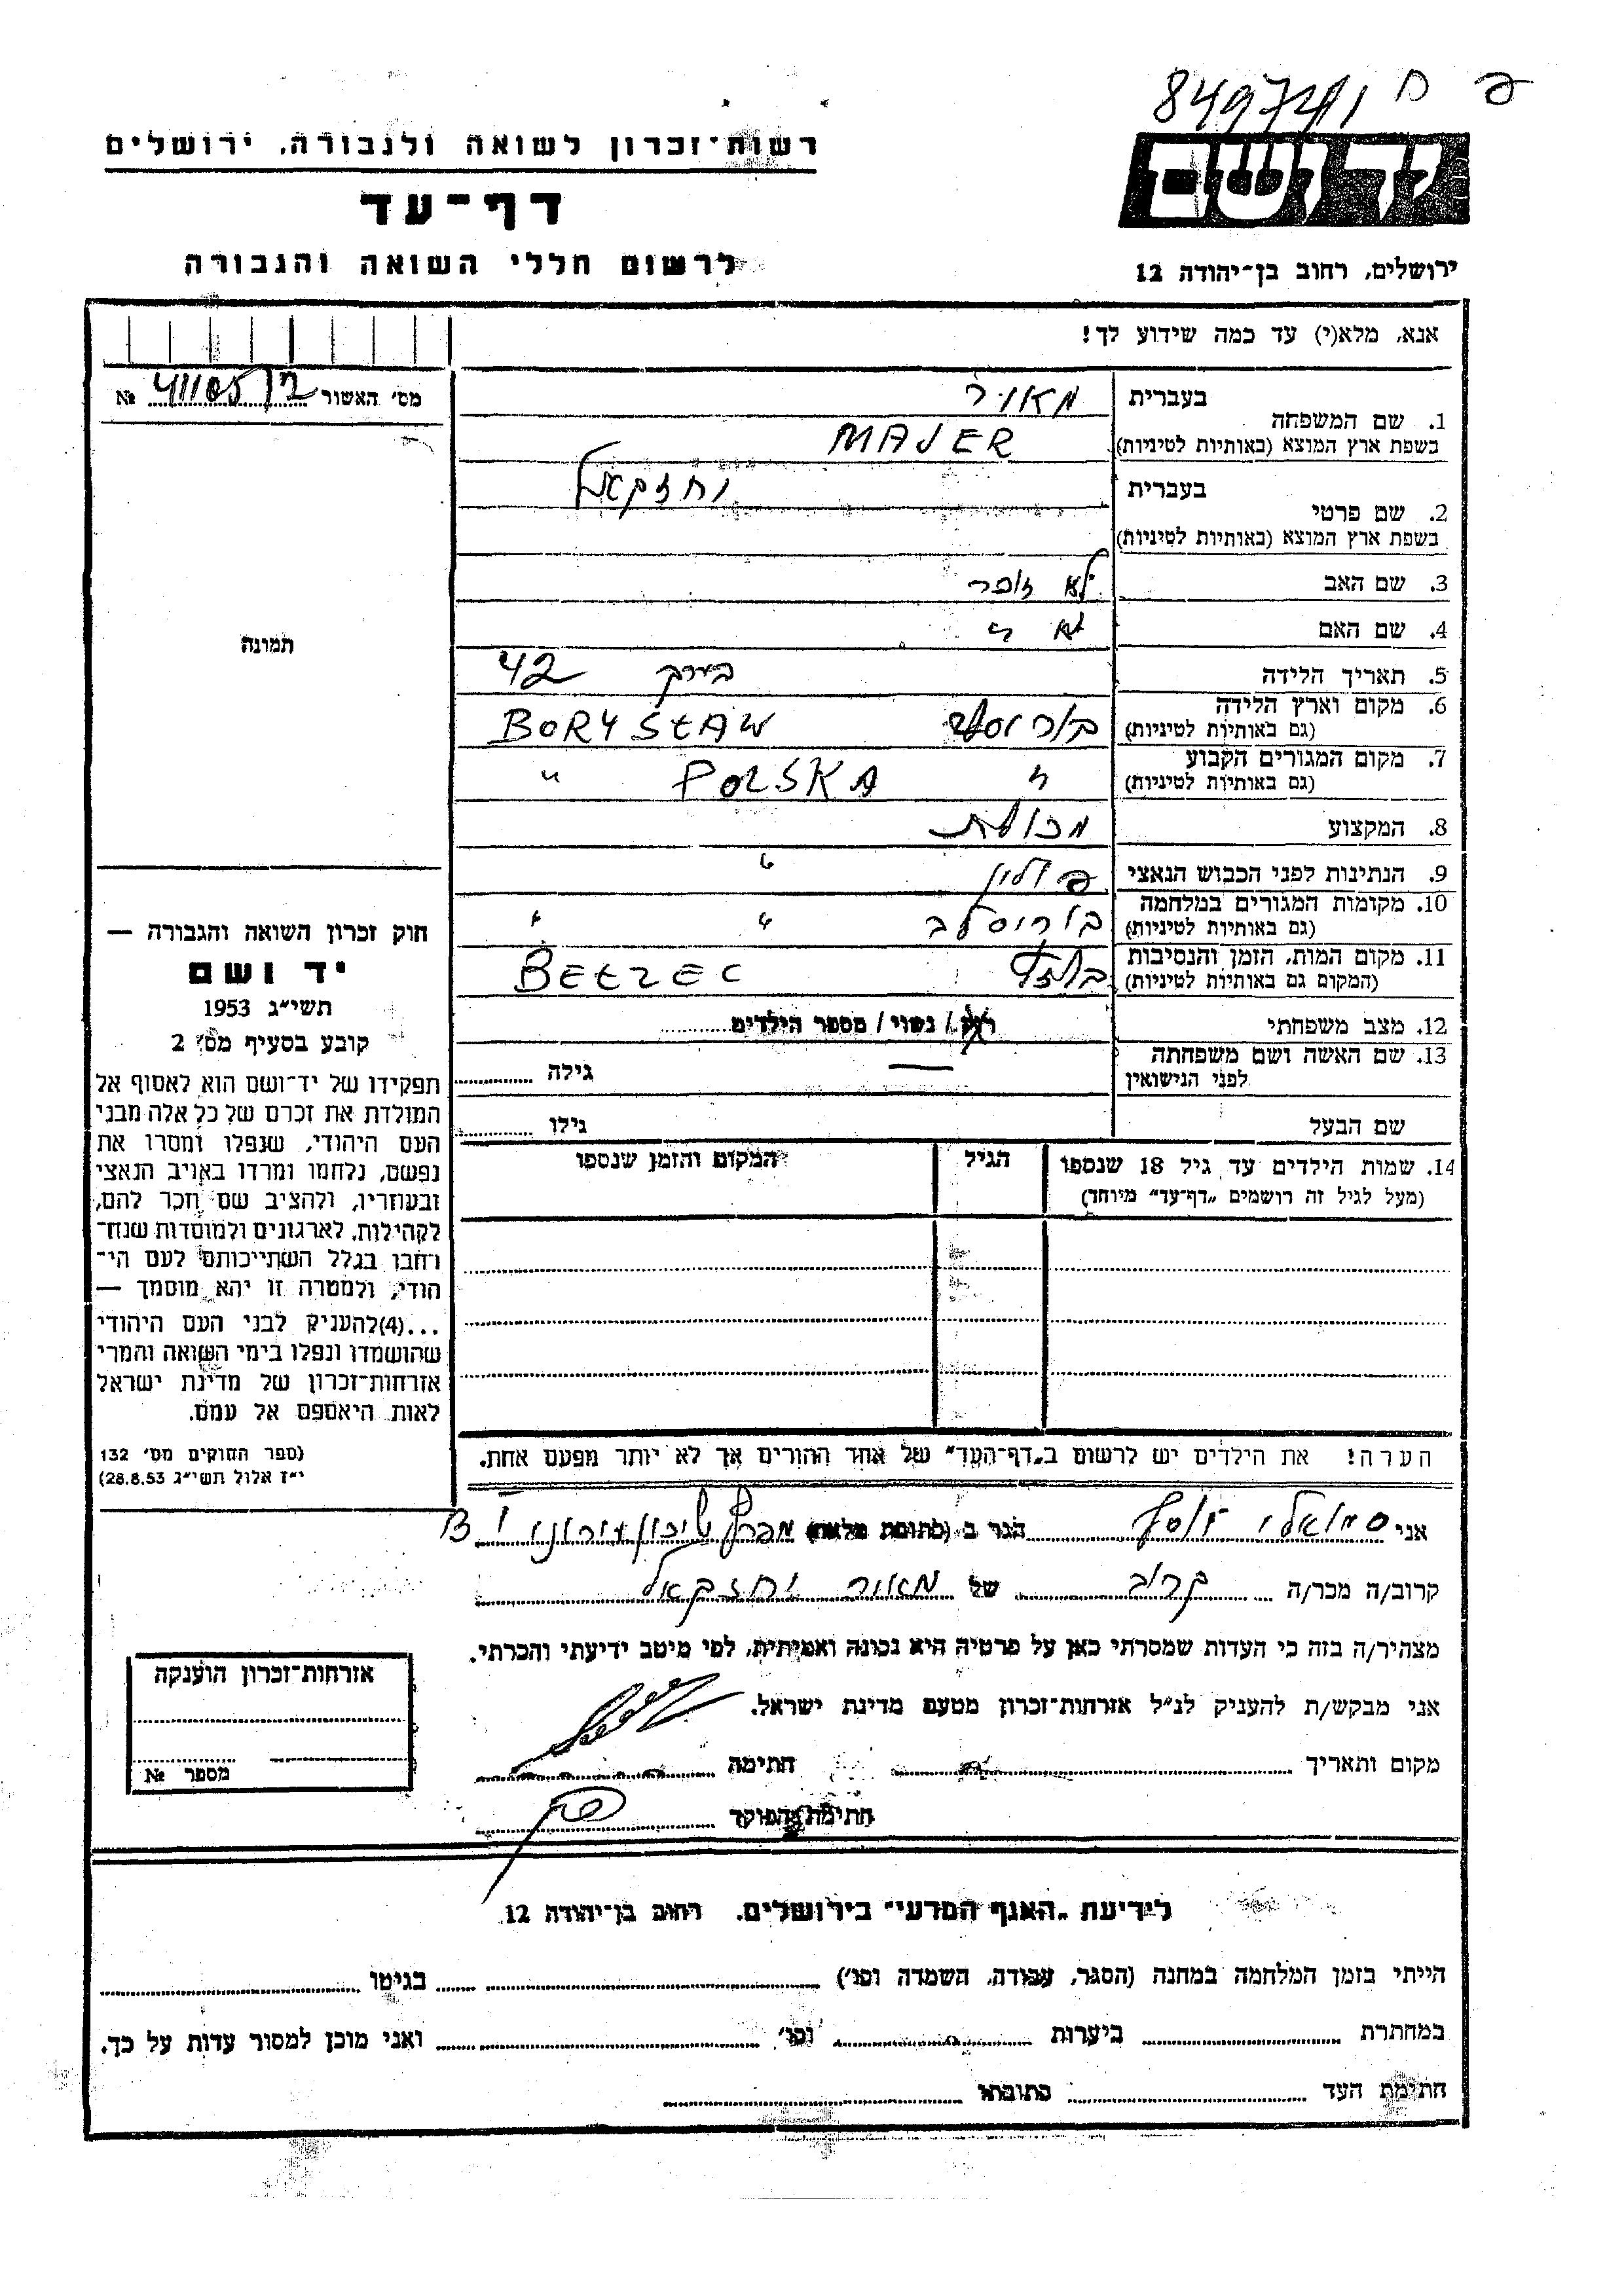 849741 ח פ
רשות־זכרון לשואה ולגבורה, ירושלים
דף־עד
לרשום חללי השואה והגבורה
יד ושם
ירושלים, רחוב בן־יהודה 12
אנא, מלא(י) עד כמה שידוע לך!
מס׳ האשור 41105 №
1. שם המשפחה
בעברית מאיר
בשפת ארץ המוצא (באותיות לטיניות) MAJER
2. שם פרטי
בעברית יחזקאל
בשפת ארץ המוצא (באותיות לטיניות)
3. שם האב לא זוכר
4. שם האם לא "
5. תאריך הלידה בערך 42
6. מקום וארץ הלידה (גם באותיות לטיניות) בוריסלב BORYSŁAW
7. מקום המגורים הקבוע (גם באותיות לטיניות) " POLSKA "
8. המקצוע מכולת
9. הנתינות לפני הכבוש הנאצי פולין "
10. מקומות המגורים במלחמה (גם באותיות לטיניות) בוריסלב " "
11. מקום המות, הזמן והנסיבות (המקום גם באותיות לטיניות) בלזץ BEŁZEC
12. מצב משפחתי רוק / נשוי / מספר הילדים
13. שם האשה ושם משפחתה לפני הנישואין — גילה
שם הבעל גילו
14. שמות הילדים עד גיל 18 שנספו (מעל לגיל זה רושמים „דף־עד״ מיוחד)
הגיל
המקום והזמן שנספו
הערה! את הילדים יש לרשום ב„דף־העד״ של אחד ההורים אך לא יותר מפעם אחת.
תמונה
חוק זכרון השואה והגבורה —
יד ושם
תשי״ג 1953
קובע בסעיף מס׳ 2
תפקידו של יד־ושם הוא לאסוף אל
המולדת את זכרם של כל אלה מבני
העם היהודי, שנפלו ומסרו את
נפשם, נלחמו ומרדו באויב הנאצי
ובעוזריו, ולהציב שם וזכר להם,
לקהילות, לארגונים ולמוסדות שנח־
רבו בגלל השתייכותם לעם הי־
הודי, ולמטרה זו יהא מוסמך —
...(4)להעניק לבני העם היהודי
שהושמדו ונפלו בימי השואה והמרי
אזרחות־זכרון של מדינת ישראל
לאות היאספם אל עמם.
(ספר החוקים מס׳ 132
י״ז אלול תשי״ג 28.8.53)
אני סמואלי יוסף הגר ב (כתובת מלאה)
קרוב/ה מכר/ה קרוב של מאיר יחזקאל
מצהיר/ה בזה כי העדות שמסרתי כאן על פרטיה היא נכונה ואמיתית, לפי מיטב ידיעתי והכרתי.
אני מבקש/ת להעניק לנ״ל אזרחות־זכרון מטעם מדינת ישראל.
מקום ותאריך חתימה
חתימת הפוקד
אזרחות־זכרון הוענקה
מספר №
לידיעת „האגף המדעי״ בירושלים, רחוב בן־יהודה 12
הייתי בזמן המלחמה במחנה (הסגר, עבודה, השמדה וכו׳) בגיטו
במחתרת ביערות וכו׳ ואני מוכן למסור עדות על כך.
חתימת העד כתובתו